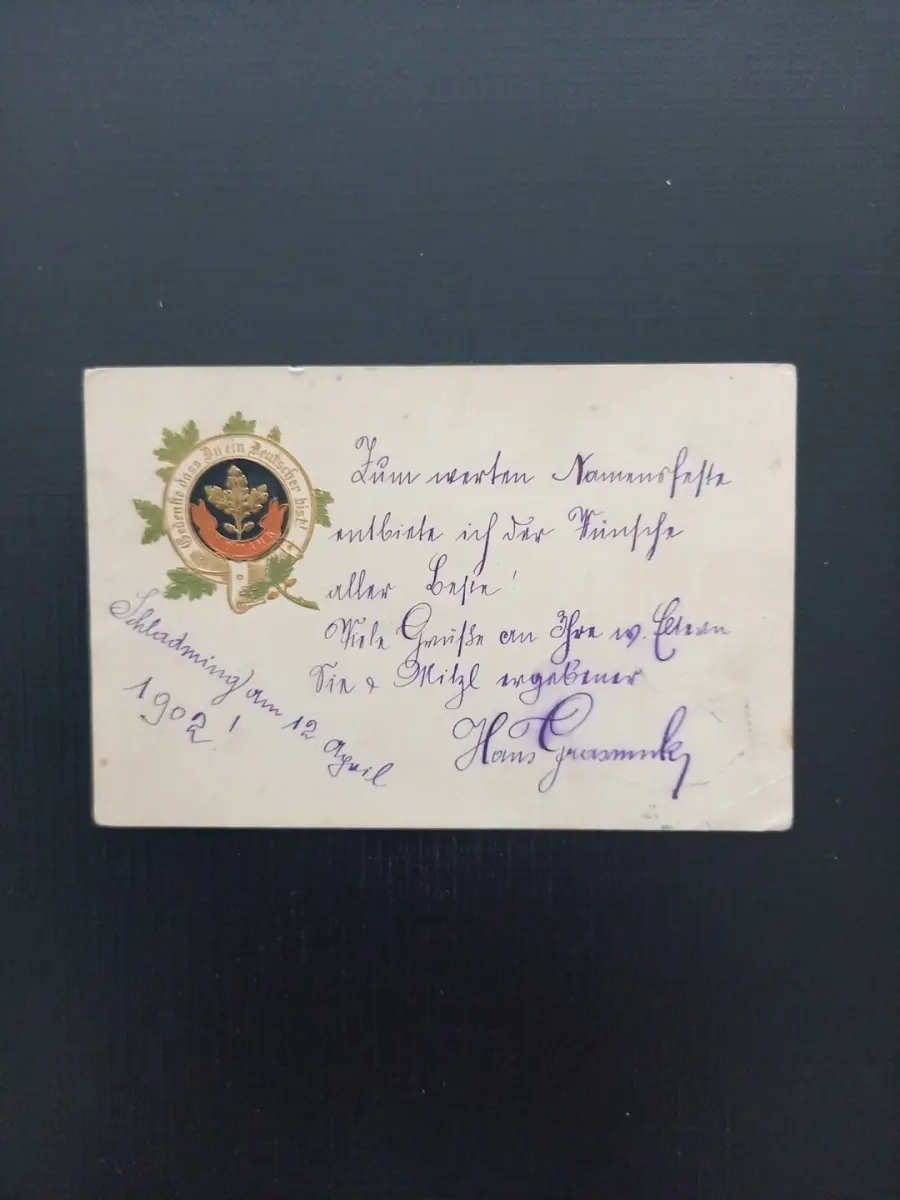 Gedenke dass Du ein Deutscher bist!
Zum werten Namensfeste
entbiete ich der Wünsche
aller Beste!
Viele Grüße an Ihre w. Eltern
Sie & Mitzl ergebener
Hans
Schladming am 12 April
1902!